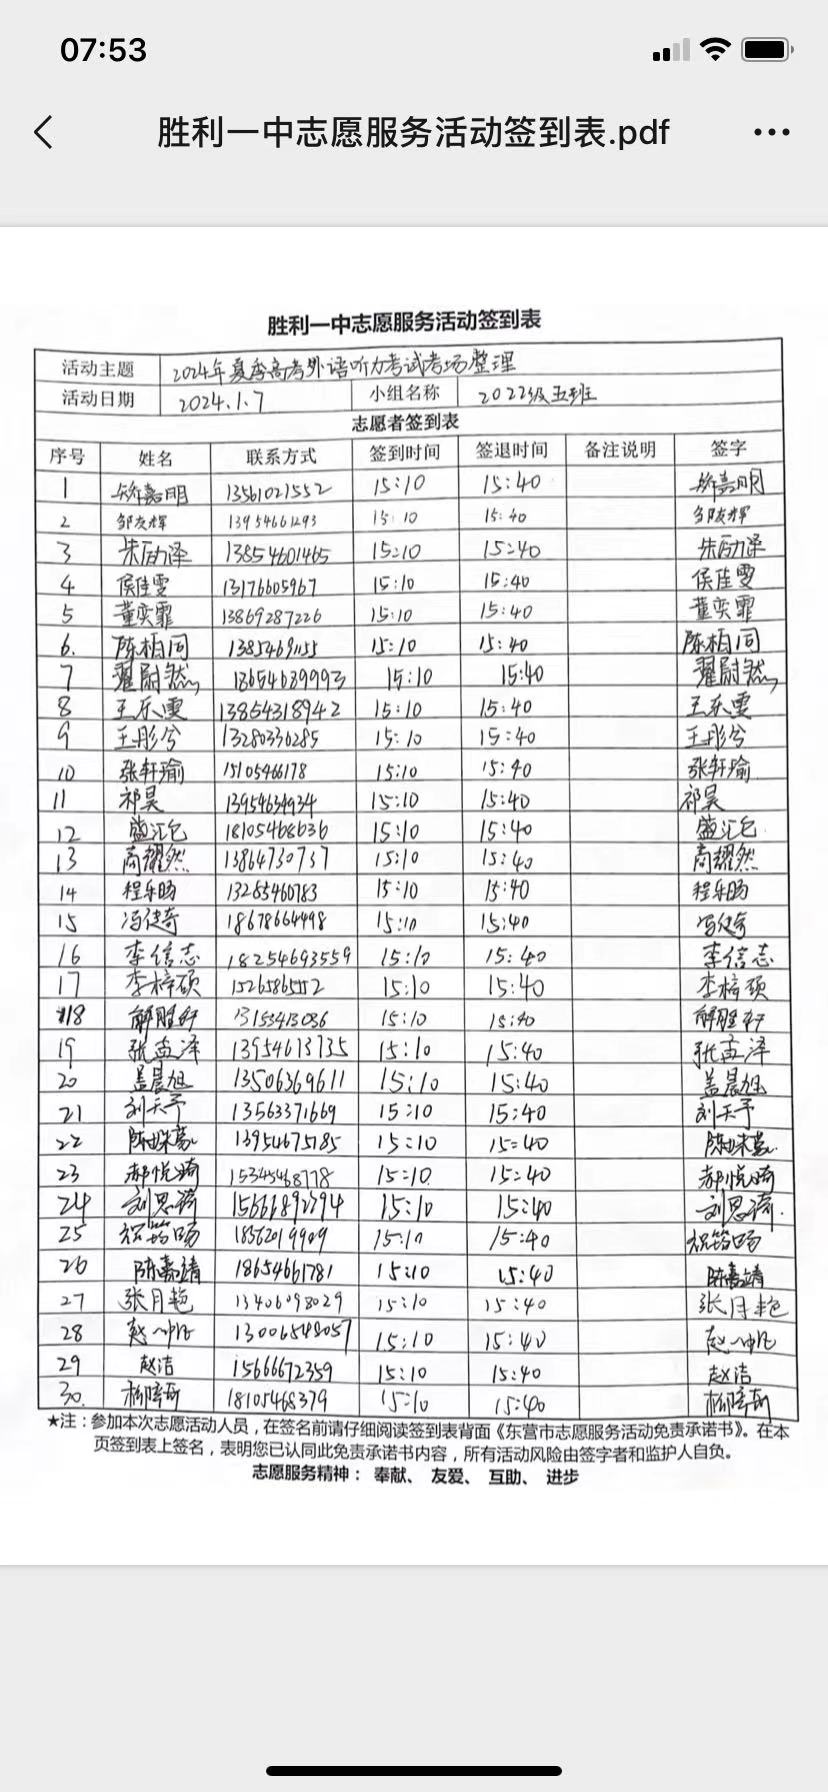 07:53
胜利一中志愿服务活动签到表.pdf
胜利一中志愿服务活动签到表
活动主题 2024年夏季高考外语听力考试考场整理
活动日期 2024.1.7 小组名称 2022级五班
志愿者签到表
序号 姓名 联系方式 签到时间 签退时间 备注说明 签字
1 矫嘉明 13561021552 15:10 15:40 矫嘉明
2 邹友辉 13954661293 15:10 15:40 邹友辉
3 朱励泽 13854601465 15:10 15:40 朱励泽
4 侯佳雯 13176605967 15:10 15:40 侯佳雯
5 董奕霏 13869287226 15:10 15:40 董奕霏
6. 陈柏同 15:10 15:40 陈柏同
7 翟尉然 18654639993 15:10 15:40 翟尉然
8 王乐雯 13854318942 15:10 15:40 王乐雯
9 王彤兮 13280330285 15:10 15:40 王彤兮
10 张轩瑜 15105466178 15:10 15:40 张轩瑜
11 祁昊 13954634934 15:10 15:40 祁昊
12 盛汇包 18105468636 15:10 15:40 盛汇包
13 高耀然 13864730737 15:10 15:40 高耀然
14 程乐旸 13265460783 15:10 15:40 程乐旸
15 18678664498 15:10 15:40
16 李信志 18254693559 15:10 15:40 李信志
17 李梓硕 15265865552 15:10 15:40 李梓硕
18 解胜轩 13153413036 15:10 15:40 解胜轩
19 张孟泽 13954613735 15:10 15:40 张孟泽
20 盖晨旭 13506369611 15:10 15:40 盖晨旭
21 刘天予 13563371669 15:10 15:40 刘天予
22 13954675185 15:10 15:40
23 郝悦琦 15345468778 15:10 15:40 郝悦琦
24 刘思琦 15666892794 15:10 15:40 刘思琦.
25 祝筠旸 18562019909 15:10 15:40 祝筠旸
26 陈嘉靖 18654661781 15:10 15:40 陈嘉靖
27 张月艳 13406098029 15:10 15:40 张月艳
28 13006548057 15:10 15:40
29 赵洁 15666672359 15:10 15:40 赵洁
30. 18105468379 15:10 15:40
★注：参加本次志愿活动人员，在签名前请仔细阅读签到表背面《东营市志愿服务活动免责承诺书》。在本
页签到表上签名，表明您已认同此免责承诺书内容，所有活动风险由签字者和监护人自负。
志愿服务精神： 奉献、 友爱、 互助、 进步